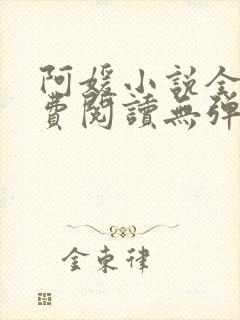 阿媛小說全
費閱讀無彈
金束律